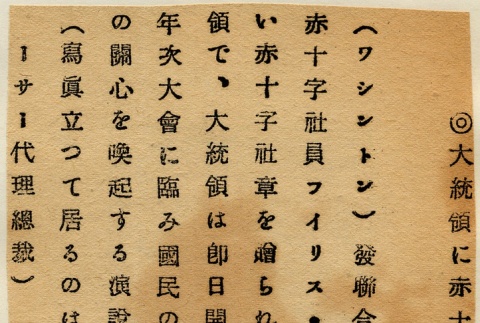 ◎大統領に赤十
(ワシントン)發聯合
赤十字社員フイリス・
い赤十字社章を贈られ
領で、大統領は卽日開
年次大會に臨み國民の
の關心を喚起する演說
(寫眞立つて居るのは
ーサー代理總裁)